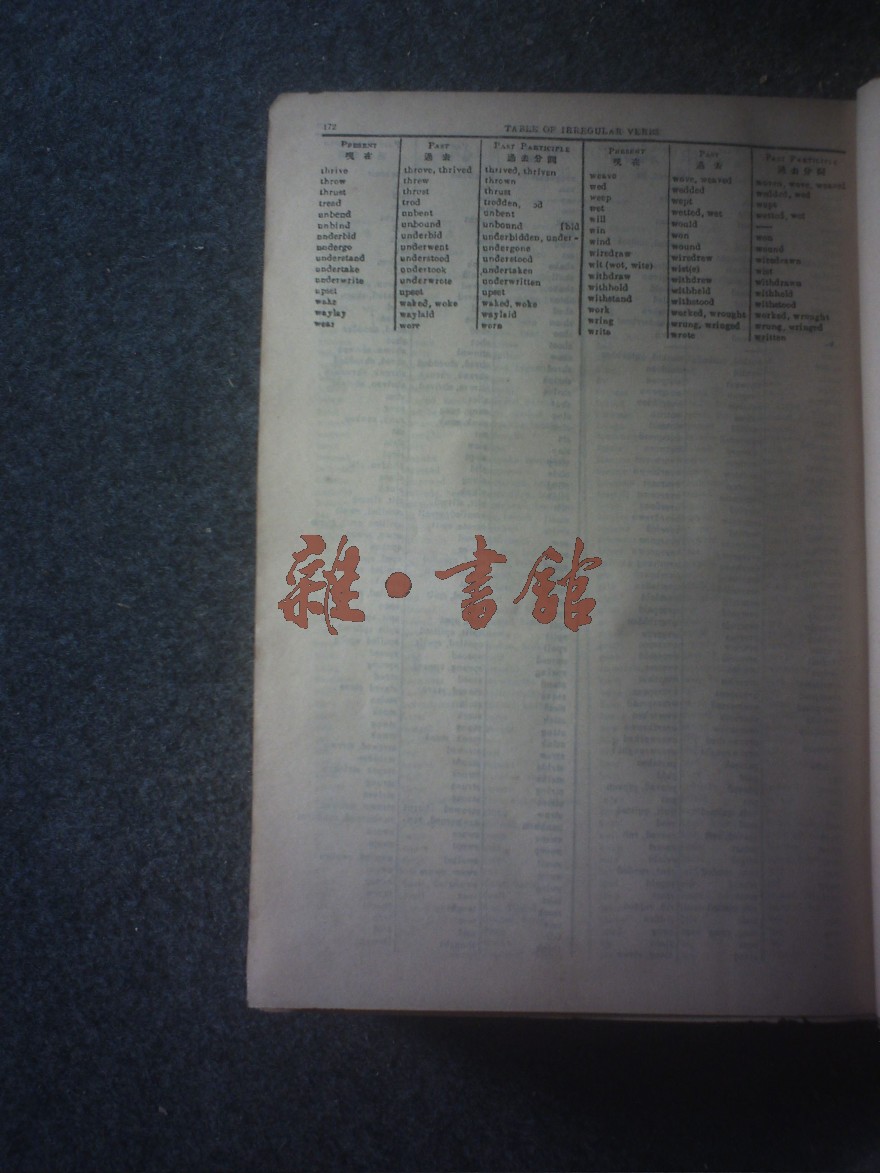 172
TABLE OF IRREGULAR VERBS
PRESENT PAST PAST PARTICIPLE
現 在 過 去 過去分詞
thrive throve, thrived thrived, thriven
throw threw thrown
thrust thrust thrust
tread trod trodden,
unbend unbent unbent
unbind unbound unbound [bid
underbid underbid underbidden, under-
undergo underwent undergone
understand understood understood
undertake undertook undertaken
underwrite underwrote underwritten
upset upset upset
wake waked, woke waked, woke
waylay waylaid waylaid
wear wore worn
PRESENT PAST PAST PARTICIPLE
現 在 過 去 過去分詞
weave wove, weaved woven, wove, weaved
wed wedded wedded, wed
weep wept wept
wet wetted, wet wetted, wet
will would ——
win won won
wind wound wound
wiredraw wiredrew wiredrawn
wit (wot, wite) wist(e) wist
withdraw withdrew withdrawn
withhold withheld withheld
withstand withstood withstood
work worked, wrought worked, wrought
wring wrung, wringed wrung, wringed
write wrote written
雜·書館